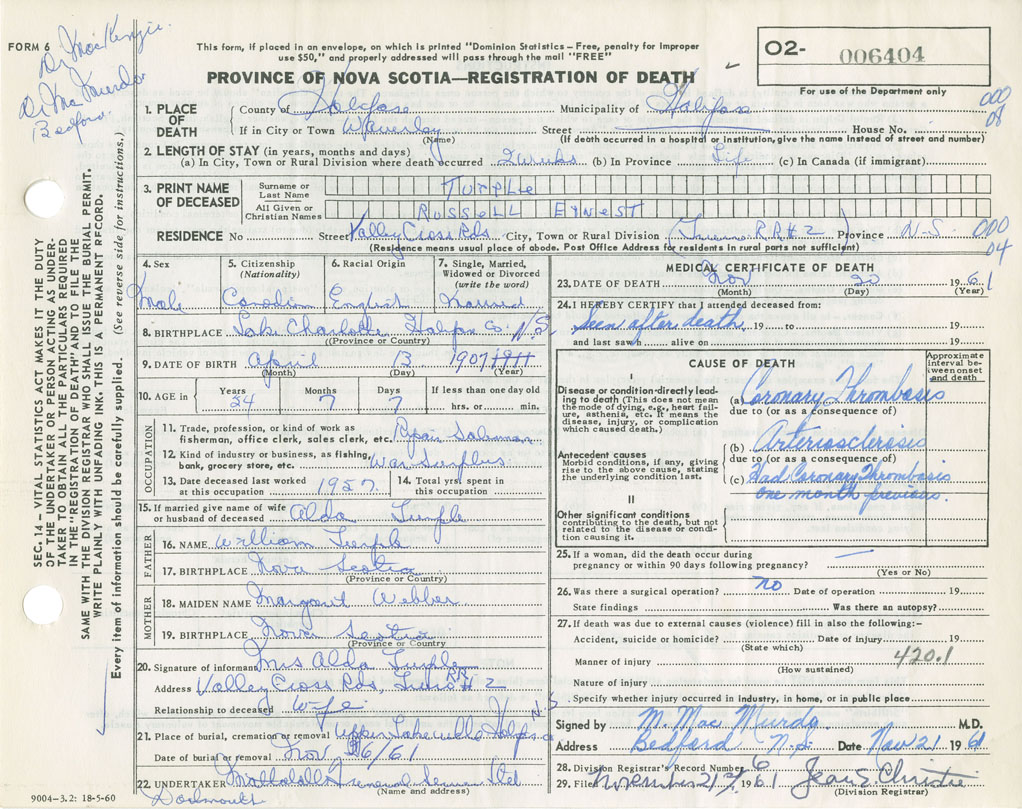 FORM 6
Dr MacKenzie
Dr Mac Murdo
Bedford.
This form, if placed in an envelope, on which is printed "Dominion Statistics – Free, penalty for improper
use $50," and properly addressed will pass through the mail "FREE"
PROVINCE OF NOVA SCOTIA—REGISTRATION OF DEATH
O2- 006404
For use of the Department only
000
08
1. PLACE OF DEATH
County of Halifax Municipality of Halifax
If in City or Town Waverley Street House No.
(Name) (If death occurred in a hospital or institution, give the name instead of street and number)
2. LENGTH OF STAY (in years, months and days)
(a) In City, Town or Rural Division where death occurred 2 weeks (b) In Province Life (c) In Canada (if immigrant)
3. PRINT NAME OF DECEASED
Surname or Last Name TURPLE
All Given or Christian Names RUSSELL ERNEST
RESIDENCE No Street Valley Cross Rds City, Town or Rural Division Truro RR#2 Province N.S.
000
04
(Residence means usual place of abode. Post Office Address for residents in rural parts not sufficient)
4. Sex Male
5. Citizenship (Nationality) Canadian
6. Racial Origin English
7. Single, Married, Widowed or Divorced (write the word) Married
8. BIRTHPLACE Lake Charlotte Halifax Co. N.S.
(Province or Country)
9. DATE OF BIRTH April 13 1907
(Month) (Day) (Year)
10. AGE in Years 54 Months 7 Days 7 If less than one day old hrs. or min.
OCCUPATION
11. Trade, profession, or kind of work as fisherman, office clerk, sales clerk, etc. Salesman
12. Kind of industry or business, as fishing, bank, grocery store, etc. War Surplus
13. Date deceased last worked at this occupation 1957.
14. Total yrs. spent in this occupation
15. If married give name of wife or husband of deceased Alda Turple
FATHER
16. NAME William Turple
17. BIRTHPLACE Nova Scotia
(Province or Country)
MOTHER
18. MAIDEN NAME Margaret Webber
19. BIRTHPLACE Nova Scotia
(Province or Country)
20. Signature of informant Mrs Alda Turple
Address Valley Cross Rds, Truro RR#2 N.S.
Relationship to deceased Wife
21. Place of burial, cremation or removal Upper Lakeville Halifax Co
Date of burial or removal Nov 26/61
22. UNDERTAKER Mattatall Funeral Service Ltd
(Name and address)
Dartmouth
9004-3.2: 18-5-60
MEDICAL CERTIFICATE OF DEATH
23. DATE OF DEATH Nov 20 1961
(Month) (Day) (Year)
24. I HEREBY CERTIFY that I attended deceased from:
Seen after death, 19 to 19
and last saw alive on 19
CAUSE OF DEATH
Approximate interval between onset and death
I
Disease or condition directly leading to death (This does not mean the mode of dying, e.g., heart failure, asthenia, etc. It means the disease, injury, or complication which caused death.)
(a) Coronary Thrombosis
due to (or as a consequence of)
Antecedent causes
Morbid conditions, if any, giving rise to the above cause, stating the underlying condition last.
(b) Arteriosclerosis
due to (or as a consequence of)
(c) Had Coronary Thrombosis
one month previous.
II
Other significant conditions
contributing to the death, but not related to the disease or condition causing it.
25. If a woman, did the death occur during
pregnancy or within 90 days following pregnancy? —
(Yes or No)
26. Was there a surgical operation? no Date of operation 19
State findings Was there an autopsy?
27. If death was due to external causes (violence) fill in also the following:-
Accident, suicide or homicide? Date of injury 19
(State which)
420.1
Manner of injury
(How sustained)
Nature of injury
Specify whether injury occurred in industry, in home, or in public place
Signed by M. Mac Murdo M.D.
Address Bedford N.S. Date Nov 21 1961
28. Division Registrar's Record Number 6
29. Filed November 21 1961 Jean S. Christie
(Division Registrar)
SEC. 14 – VITAL STATISTICS ACT MAKES IT THE DUTY
OF THE UNDERTAKER OR PERSON ACTING AS UNDER-
TAKER TO OBTAIN ALL THE PARTICULARS REQUIRED
IN THE "REGISTRATION OF DEATH" AND TO FILE THE
SAME WITH THE DIVISION REGISTRAR WHO SHALL ISSUE THE BURIAL PERMIT.
WRITE PLAINLY WITH UNFADING INK. THIS IS A PERMANENT RECORD.
Every item of information should be carefully supplied. (See reverse side for instructions.)